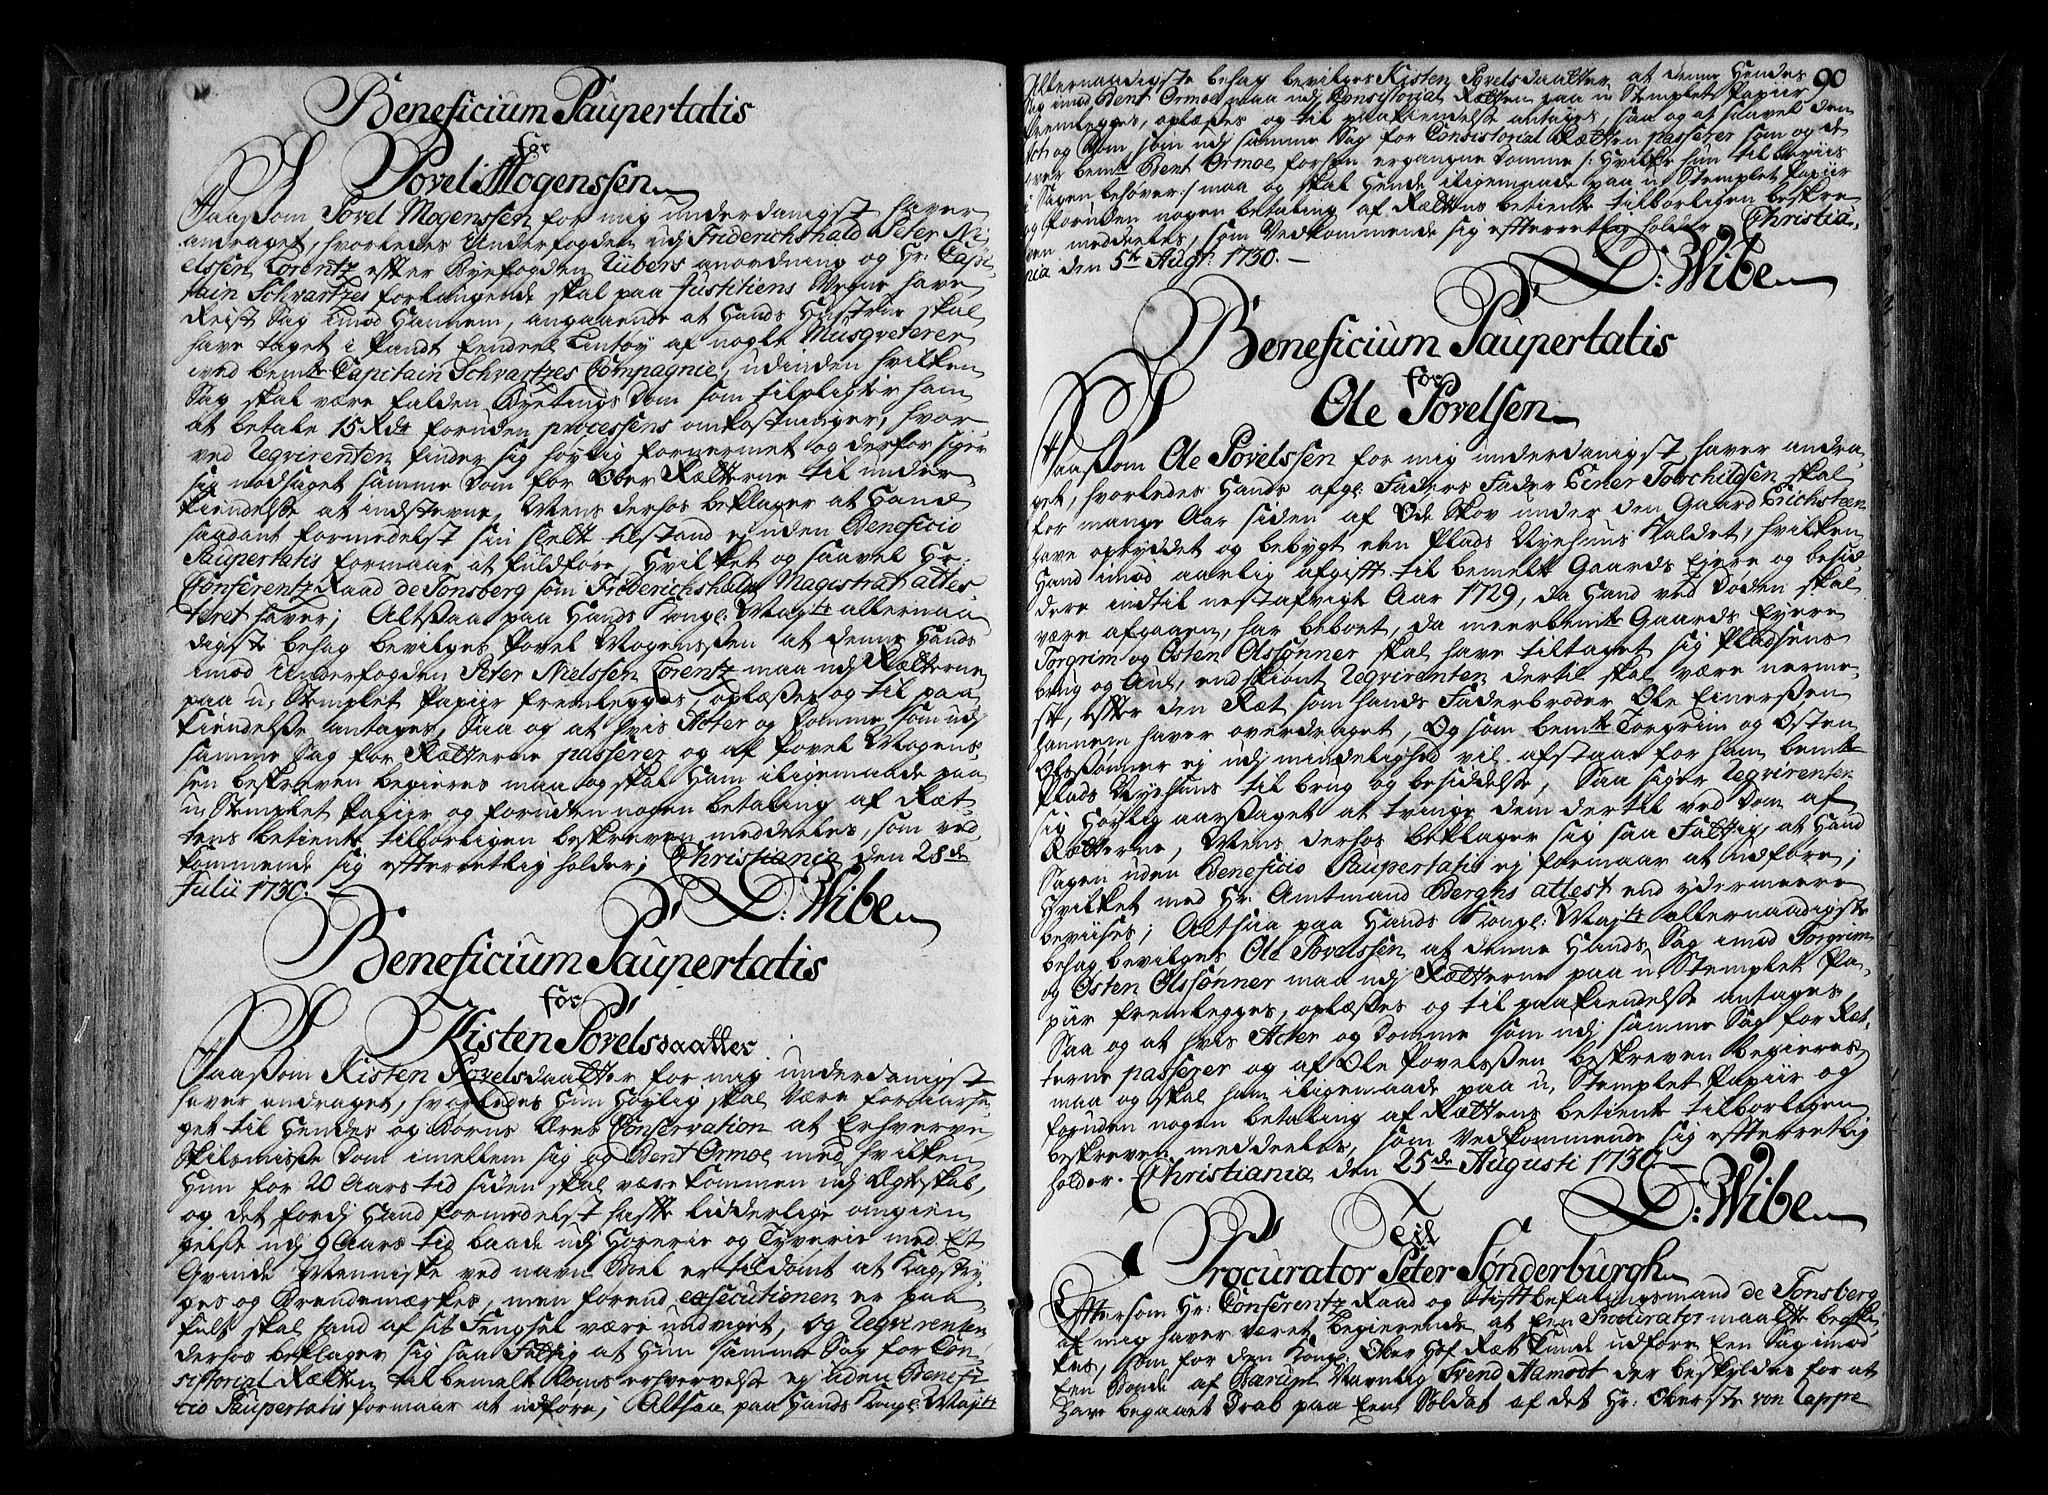 Beneficium Paupertatis
for
Povel Mogenssen
Saasom Povel Mogenssen for mig underdanigst haver
andraget, hvorledes Underfogden udj Friderichshald Peter Ni-
elssen Lorentz efter Byefogden Lübers anordning og Hr: Capi-
tain Schvartzes forlangende skal paa Justitiens Vegne have
Reist Sag imod Hannem, angaaende at Hands Hustrue skal
have taget i Pandt Eendeel Lintøy af nogle Musqveterer
ved bemte Capitain Schvartzes Compagnie, udinden hvilken
Sag skal være falden Byetings Dom som tilpligter ham
at betale 15 Rdr foruden processens omkostninger, hvor-
ved Reqvirenten finder sig høylig fornermet og derfor siger
sig nødsaget samme Dom for Ober Rætterne til under
kiendelse at indstevne, Mens derhos beklager at Hand
saadant formedelst sin slett tilstand ej uden Beneficio
Paupertatis formaar at fuldføre, Hvilket og saavel Hr:
Conferentz Raad de Tonsberg som Friderichshalds Magistrat attes-
teret haver; Altsaa paa Hands Kongl: Maÿts allernaa
digste behag bevilges Povel Mogenssen at denne Hands
imod Underfogden Peter Nielssen Lorentz maa udj Rætterne
paa u, Stemplet Papiir fremlegges, oplæses og til paa
kiendelse antages, Saa og at hvis Acter og Domme, som udj
samme Sag for Rætterne passerer og af Povel Mogens-
sen beskreven begieres maa og skal Ham iligemaade paa
u, Stemplet Papiir og foruden nogen betaling af Ræt-
tens betiente tilbørligen beskreven meddeeles, som ved-
kommende sig efterrettlig holder; Christiania den 28de
Julii 1730.
D: Wibe
Beneficium Paupertatis
for
Kisten Povelsdaatter
Saasom Kisten Povelsdaatter for mig underdanigst
haver andraget, hvorledes Hun høylig skal Være foraarsa-
get til Hendes og Børns Æres Conservation at Erhverve
Skilsmisse Dom imellem sig og Bent Ormoe med hvilken
Hun for 20 Aars tid siden skal være kommen udj Ægteskab,
og det fordj Hand formedelst hafte lidderlige omgien-
gelse udj 9 Aars tid baade udj Horerie og Tyverie med Et
Qvinde Menniske ved navn Boel er tildømt at Kagstry-
ges og Brendemærkes, men forend executionen er paa
fult skal hand af sit Fengsel være undviget, og Reqvirenten
derhos beklager sig saa Fattig at Hun samme Sag for Con-
sistorial Rætten til bemelte Doms erhvervelse ej uden Benefi-
cio Paupertatis formaar at udføre; Altsaa paa Hands Kongl: Maÿts
90
Allernaadigste behag bevilges Kisten Povelsdaatter at denne Hendes
Sag imod Bent Ormoe maa udj Consistorial Rætten paa u Stemplet Papiir
fremlegges, oplæses og til paakiendelse antages, saa og at saavel den
Act og Dom, som udj samme Sag for Consistorial Rætten passerer som og de
over bemte Bent Ormoe forhen ergangne Domme /: Hvilke hun til beviis
i Sagen behøver :/ maa og skal Hende iligemaade paa u Stemplet Papiir
og foruden nogen betaling af Rættens betiente tilbørligen beskre
ven meddeeles, som Vedkommende sig efterrettlig holder Christia-
nia den 5te Augt: 1730.
D: Wibe
Beneficium Paupertatis
for
Ole Povelsen
Saasom Ole Povelssen for mig underdanigst haver andra-
get, hvorledes Hands afgl: Faders Fader Einer Torchildsen skal
for mange Aar siden af Øde Skov under den Gaard Erichsteen
have opryddet og bebygt een Plads Ryehuus kaldet, hvilken
Hand imod aarlig afgift til bemelte Gaards Ejere og besid
dere indtil nestafvigte Aar 1729, da Hand ved Døden skal
være afgaaen, har beboet, da meerbemte Gaards Eyere
Torgrim og Østen Olssønner skal have tiltaget sig Pladsens
brug og Aul, endskiønt Reqvirenten dertil skal være nerme-
st, Efter den Ræt som hands Faderbroder Ole Einerssen
hannem haver overdraget, Og som bemte Torgrim og Østen
Olssønner ej udj mindelighed vil afstaae for ham bemte
Plads Ryehuus til brug og besiddelse, Saa siger Reqvirenten
sig høylig aarsaget at tvinge dem dertil ved Dom af
Rætterne, Mens derhos beklager sig saa Fattig, at Hand
Sagen uden Beneficio Paupertatis ej formaar at udføre;
Hvilket med Hr: Amtmand Berghs attest end ydermeere
beviises; Altsaa paa Hands Kongl: Maÿts allernaadigste
behag bevilges Ole Povelssen at denne Hands Sag imod Torgrim
og Østen Olssønner maa udj Rætterne paa u Stemplet Pa-
piir fremlegges, oplæses og til paakiendelse antages,
Saa og at hvis Acter og Domme som udj samme Sag for Ræt-
terne passerer og af Ole Povelssen beskreven begieres
maa og skal ham iligemaade paa u, Stemplet Papiir og
foruden nogen betaling af Rættens betiente tilbørligen
beskreven meddeeles, som Vedkommende sig efterrettlig
holder. Christiania den 25de Augusti 1730
D: Wibe
Til
Procurator Peter Sønderburgh
Eftersom Hr: Conferentz Raad og Stiftbefalingsmand de Tonsberg
af mig haver været begierende at een Procurator maatte beski-
kes, som for den Kongl: Ober Hof Ræt kunde udføre Een Sag imod
Een Bonde af Navnlig Svend Aamodt der beskyldes for at
have begaaet Drab paa Een Soldat af det Hr: Oberste von Rappe